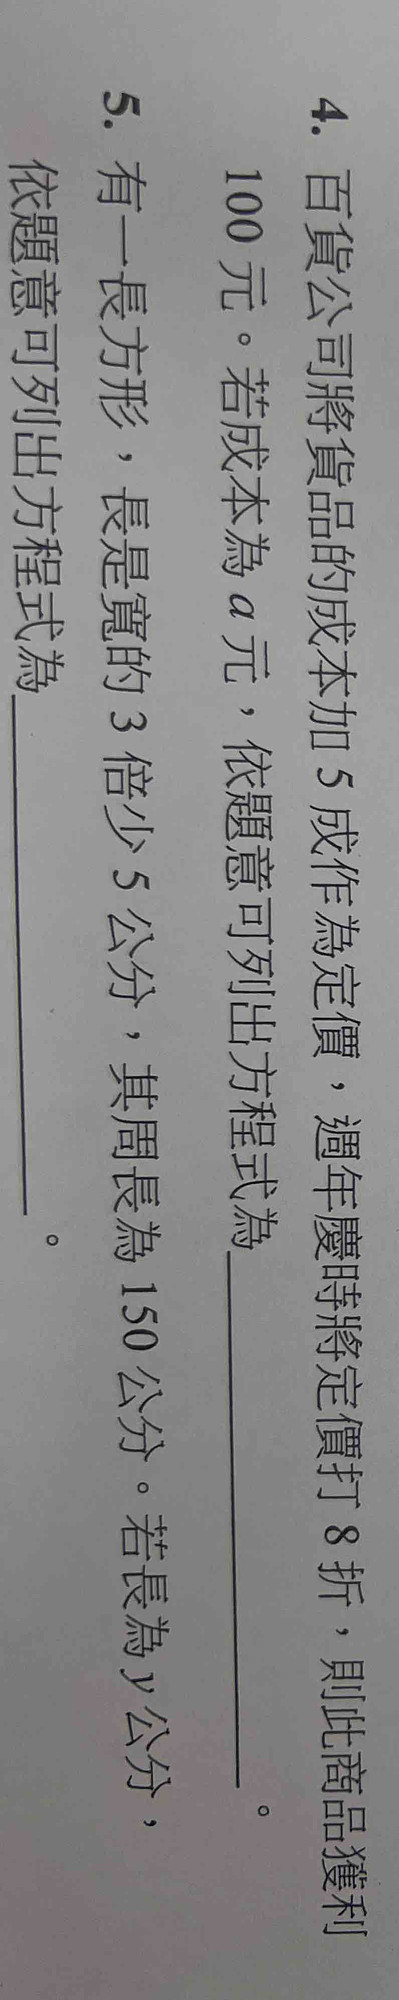 4. 百貨公司將貨品的成本加 5 成作為定價，週年慶時將定價打 8 折，則此商品獲利
100 元。若成本為 a 元，依題意可列出方程式為____________。
5. 有一長方形，長是寬的 3 倍少 5 公分，其周長為 150 公分。若長為 y 公分，
依題意可列出方程式為____________。